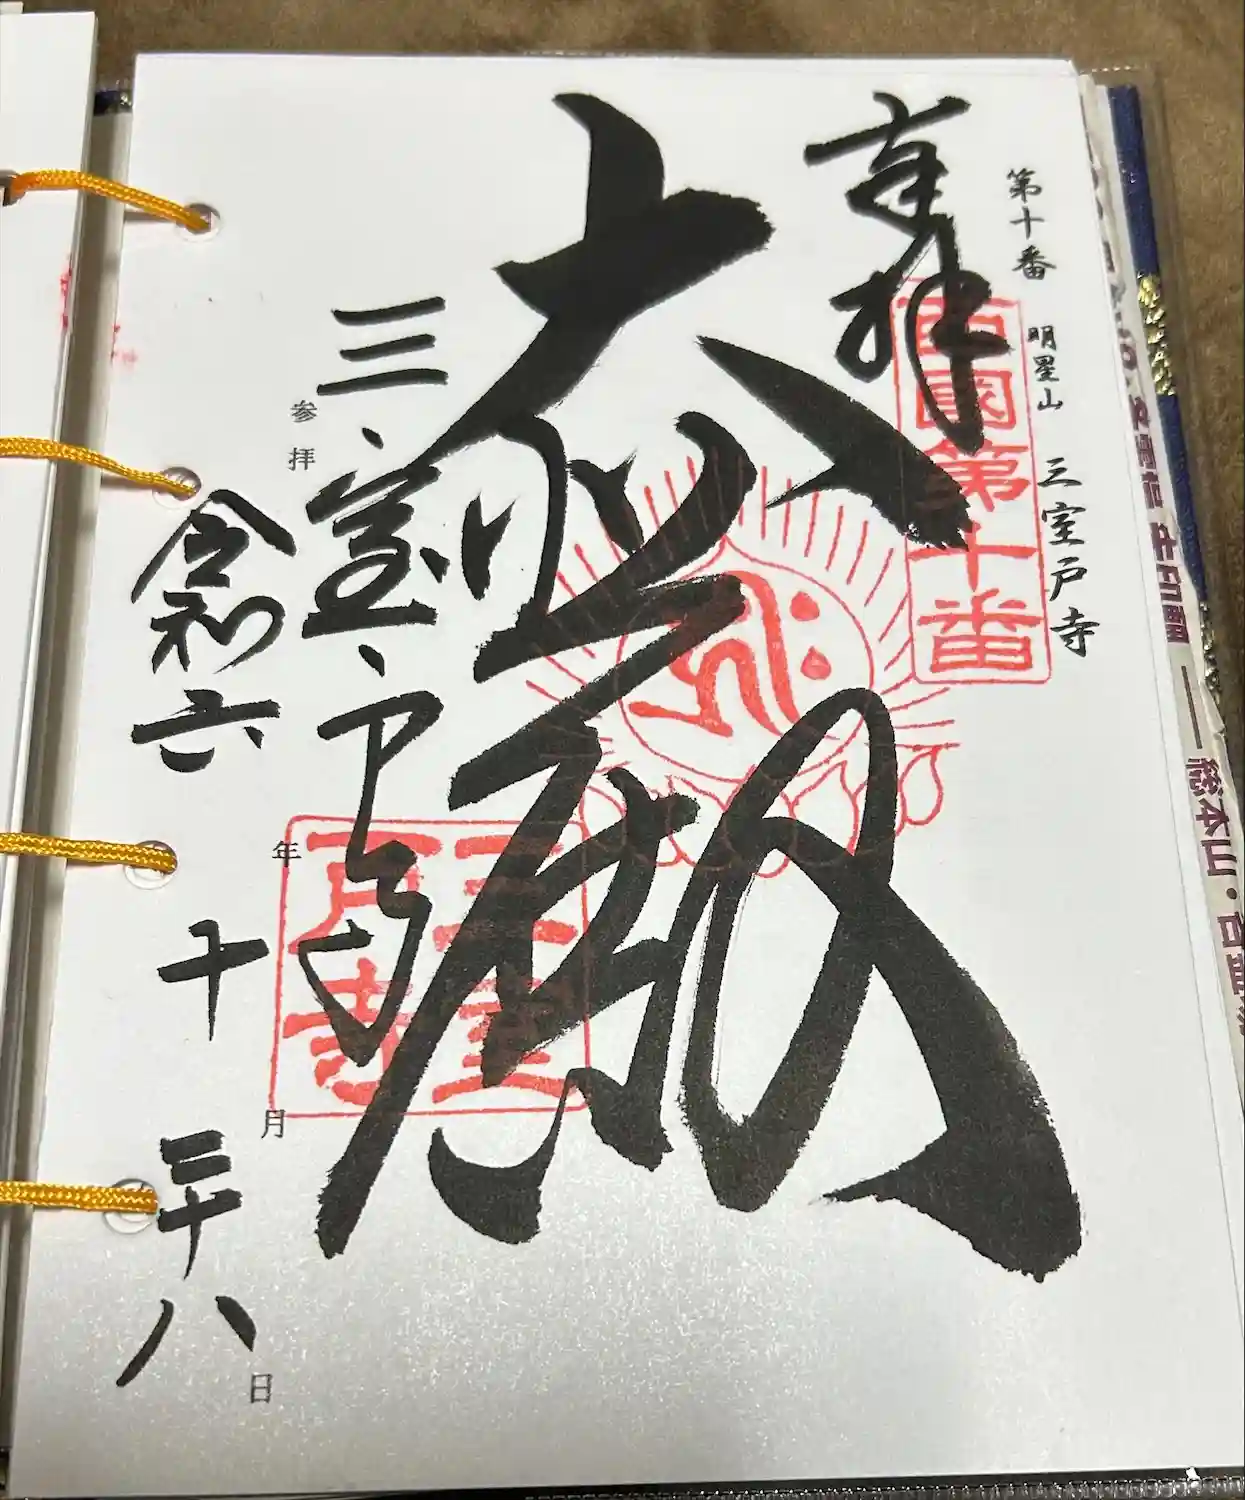 第十番 明星山 三室戸寺
奉拝
西國第十番
大悲殿
三室戸寺
三室戸寺
参拝
令和六年十月二十八日
総本山・